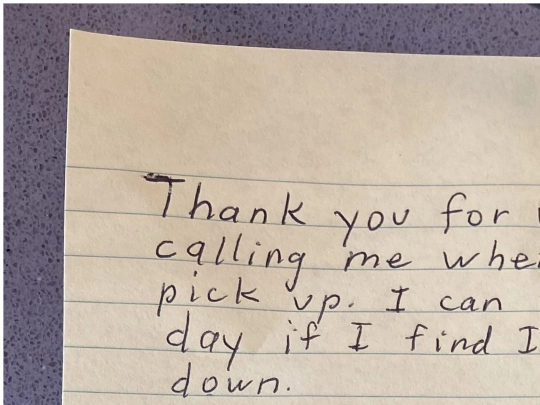 Thank you for
calling me
pick up. I can
day if I find I
down.